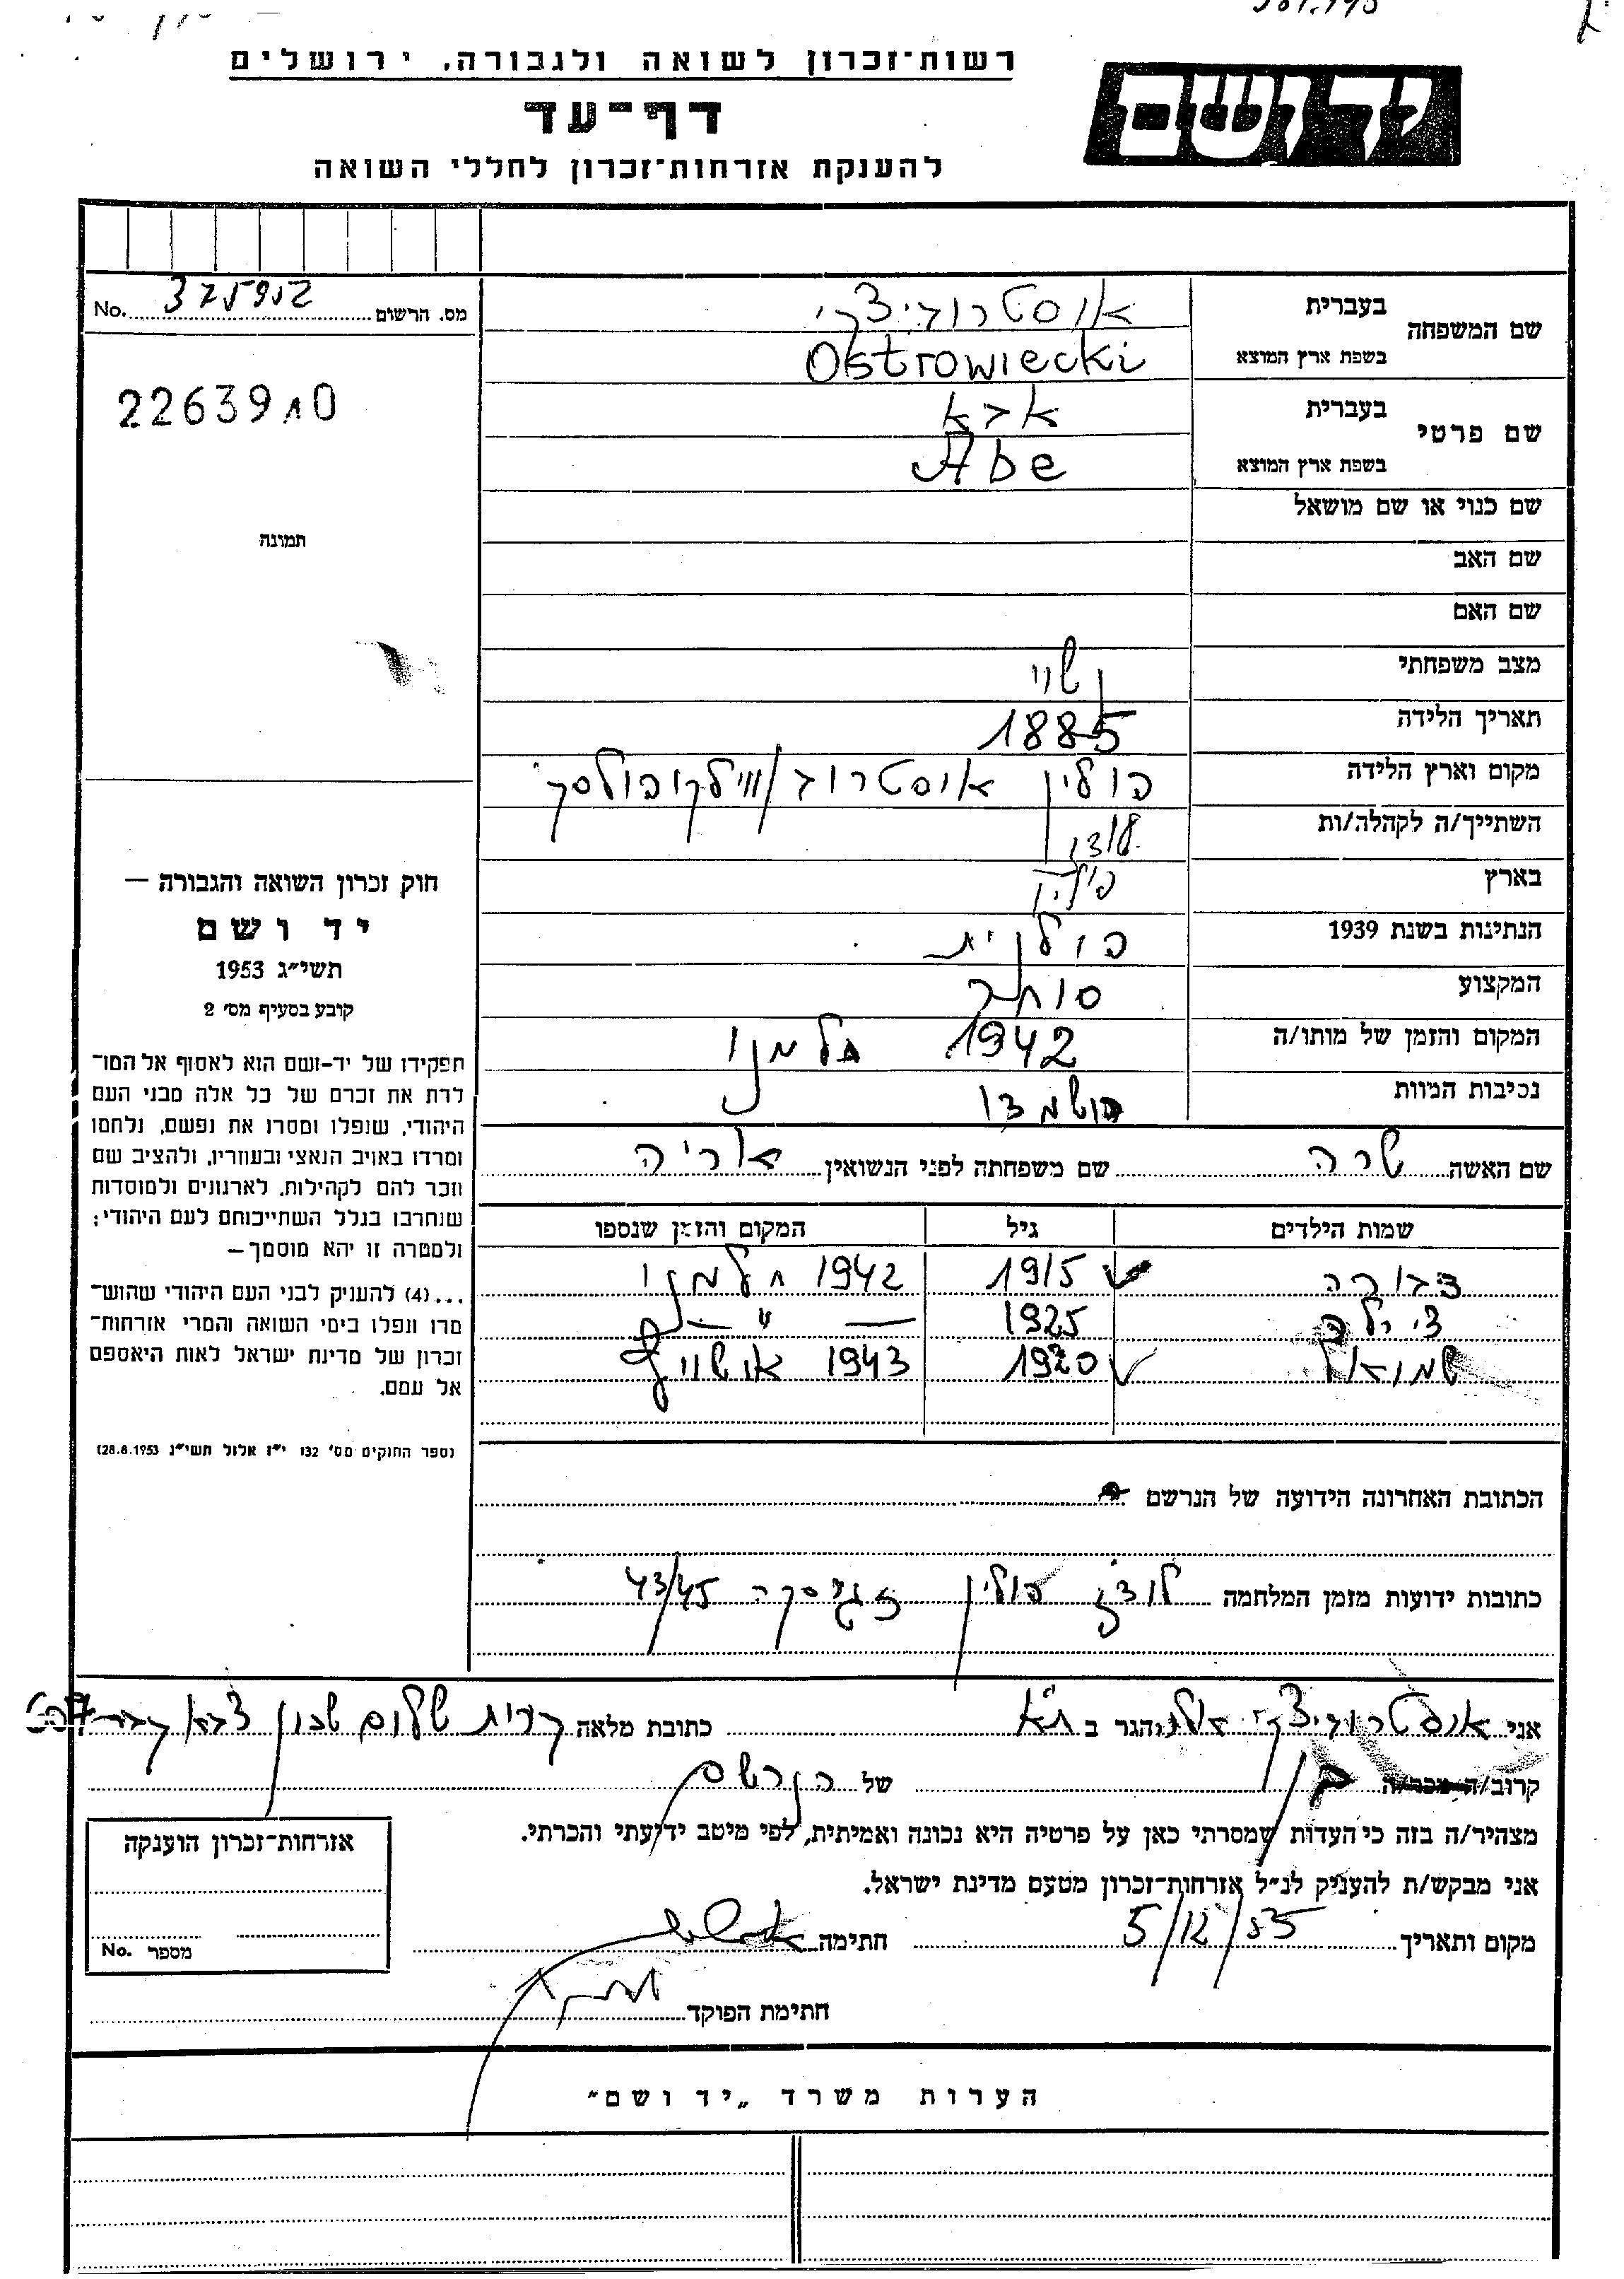 רשות־זכרון לשואה ולגבורה, ירושלים
דף־עד
להענקת אזרחות־זכרון לחללי השואה
יד ושם
מס. הרשום 375952 No.
2263910
תמונה
חוק זכרון השואה והגבורה —
יד ושם
תשי״ג 1953
קובע בסעיף מס׳ 2
תפקידו של יד-ושם הוא לאסוף אל המו־
לדת את זכרם של כל אלה מבני העם
היהודי, שנפלו ומסרו את נפשם, נלחמו
ומרדו באויב הנאצי ובעוזריו, ולהציב שם
וזכר להם לקהילות, לארגונים ולמוסדות
שנחרבו בגלל השתייכותם לעם היהודי;
ולמטרה זו יהא מוסמך—
...(4) להעניק לבני העם היהודי שהוש־
מדו ונפלו בימי השואה והמרי אזרחות־
זכרון של מדינת ישראל לאות היאספם
אל עמם.
(ספר החוקים מס׳ 132 י״ז אלול תשי״ג 28.8.1953)
שם המשפחה בעברית אוסטרוביצקי
בשפת ארץ המוצא Ostrowiecki
שם פרטי בעברית אבא
בשפת ארץ המוצא Abe
שם כנוי או שם מושאל
שם האב
שם האם
מצב משפחתי נשוי
תאריך הלידה 1885
מקום וארץ הלידה פולין אוסטרוב/ווילקופולסק
השתייך/ה לקהלה/ות לודז׳
בארץ פולין
הנתינות בשנת 1939 פולנית
המקצוע סוחר
המקום והזמן של מותו/ה 1942 חלמנו
נסיבות המוות הושמדו
שם האשה שרה שם משפחתה לפני הנשואין אריה
שמות הילדים גיל המקום והזמן שנספו
דבורה 1915 1942 חלמנו
צילה 1925 — ״ —
שמואל 1920 1943 אושויץ
הכתובת האחרונה הידועה של הנרשם
כתובות ידועות מזמן המלחמה לודז׳ פולין 43/45
אני אוסטרוביצקי הגר ב ת״א כתובת מלאה קרית שלום שכון
קרוב/ה מכר/ה בן של הנרשם
מצהיר/ה בזה כי העדות שמסרתי כאן על פרטיה היא נכונה ואמיתית, לפי מיטב ידיעתי והכרתי.
אני מבקש/ת להעניק לנ״ל אזרחות־זכרון מטעם מדינת ישראל.
מקום ותאריך 5/12/55 חתימה
חתימת הפוקד
אזרחות־זכרון הוענקה
מספר No.
הערות משרד „יד ושם״